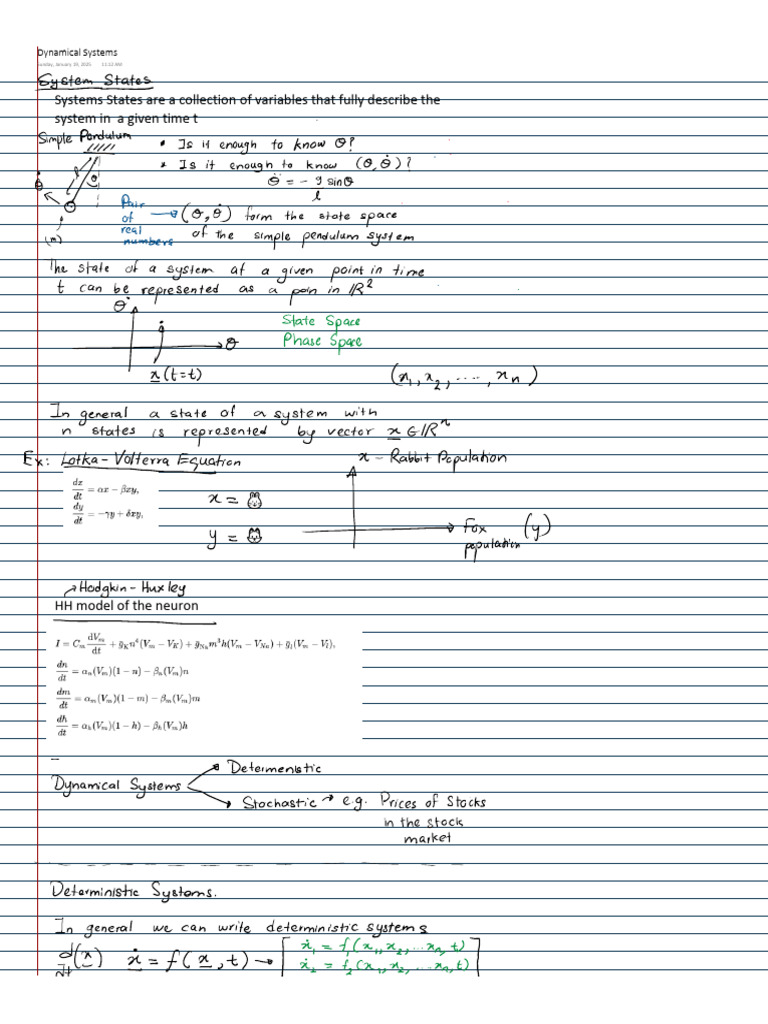 Dynamical Systems
Sunday, January 19, 2025 11:12 AM
System States
Systems States are a collection of variables that fully describe the
system in a given time t
Simple Pendulum
• Is it enough to know θ?
• Is it enough to know (θ, θ̇)?
θ̈ = - g/l sinθ
θ
θ̇
(m)
Pair of real numbers → (θ, θ̇) form the state space
of the simple pendulum system
The state of a system at a given point in time
t can be represented as a poin in ℝ²
θ̇
State Space
θ
Phase Space
x(t=t)
(x₁, x₂, ...., xₙ)
In general a state of a system with
n states is represented by vector x ∈ ℝⁿ
Ex: Lotka-Volterra Equation
x - Rabbit Population
dx/dt = αx − βxy,
x =
dy/dt = −γy + δxy,
y =
Fox population (y)
→ Hodgkin-Huxley
HH model of the neuron
I = Cₘ dVₘ/dt + ḡ_K n⁴(Vₘ − V_K) + ḡ_Na m³h(Vₘ − V_Na) + ḡ_l(Vₘ − V_l),
dn/dt = αₙ(Vₘ)(1 − n) − βₙ(Vₘ)n
dm/dt = αₘ(Vₘ)(1 − m) − βₘ(Vₘ)m
dh/dt = αₕ(Vₘ)(1 − h) − βₕ(Vₘ)h
Determenistic
Dynamical Systems
Stochastic → e.g. Prices of Stocks
in the stock
market
Deterministic Systems.
In general we can write deterministic systems
d/dt(x) ẋ = f(x, t) → [ ẋ₁ = f₁(x₁, x₂, ... xₙ, t)
ẋ₂ = f₂(x₁, x₂, ... xₙ, t) ]